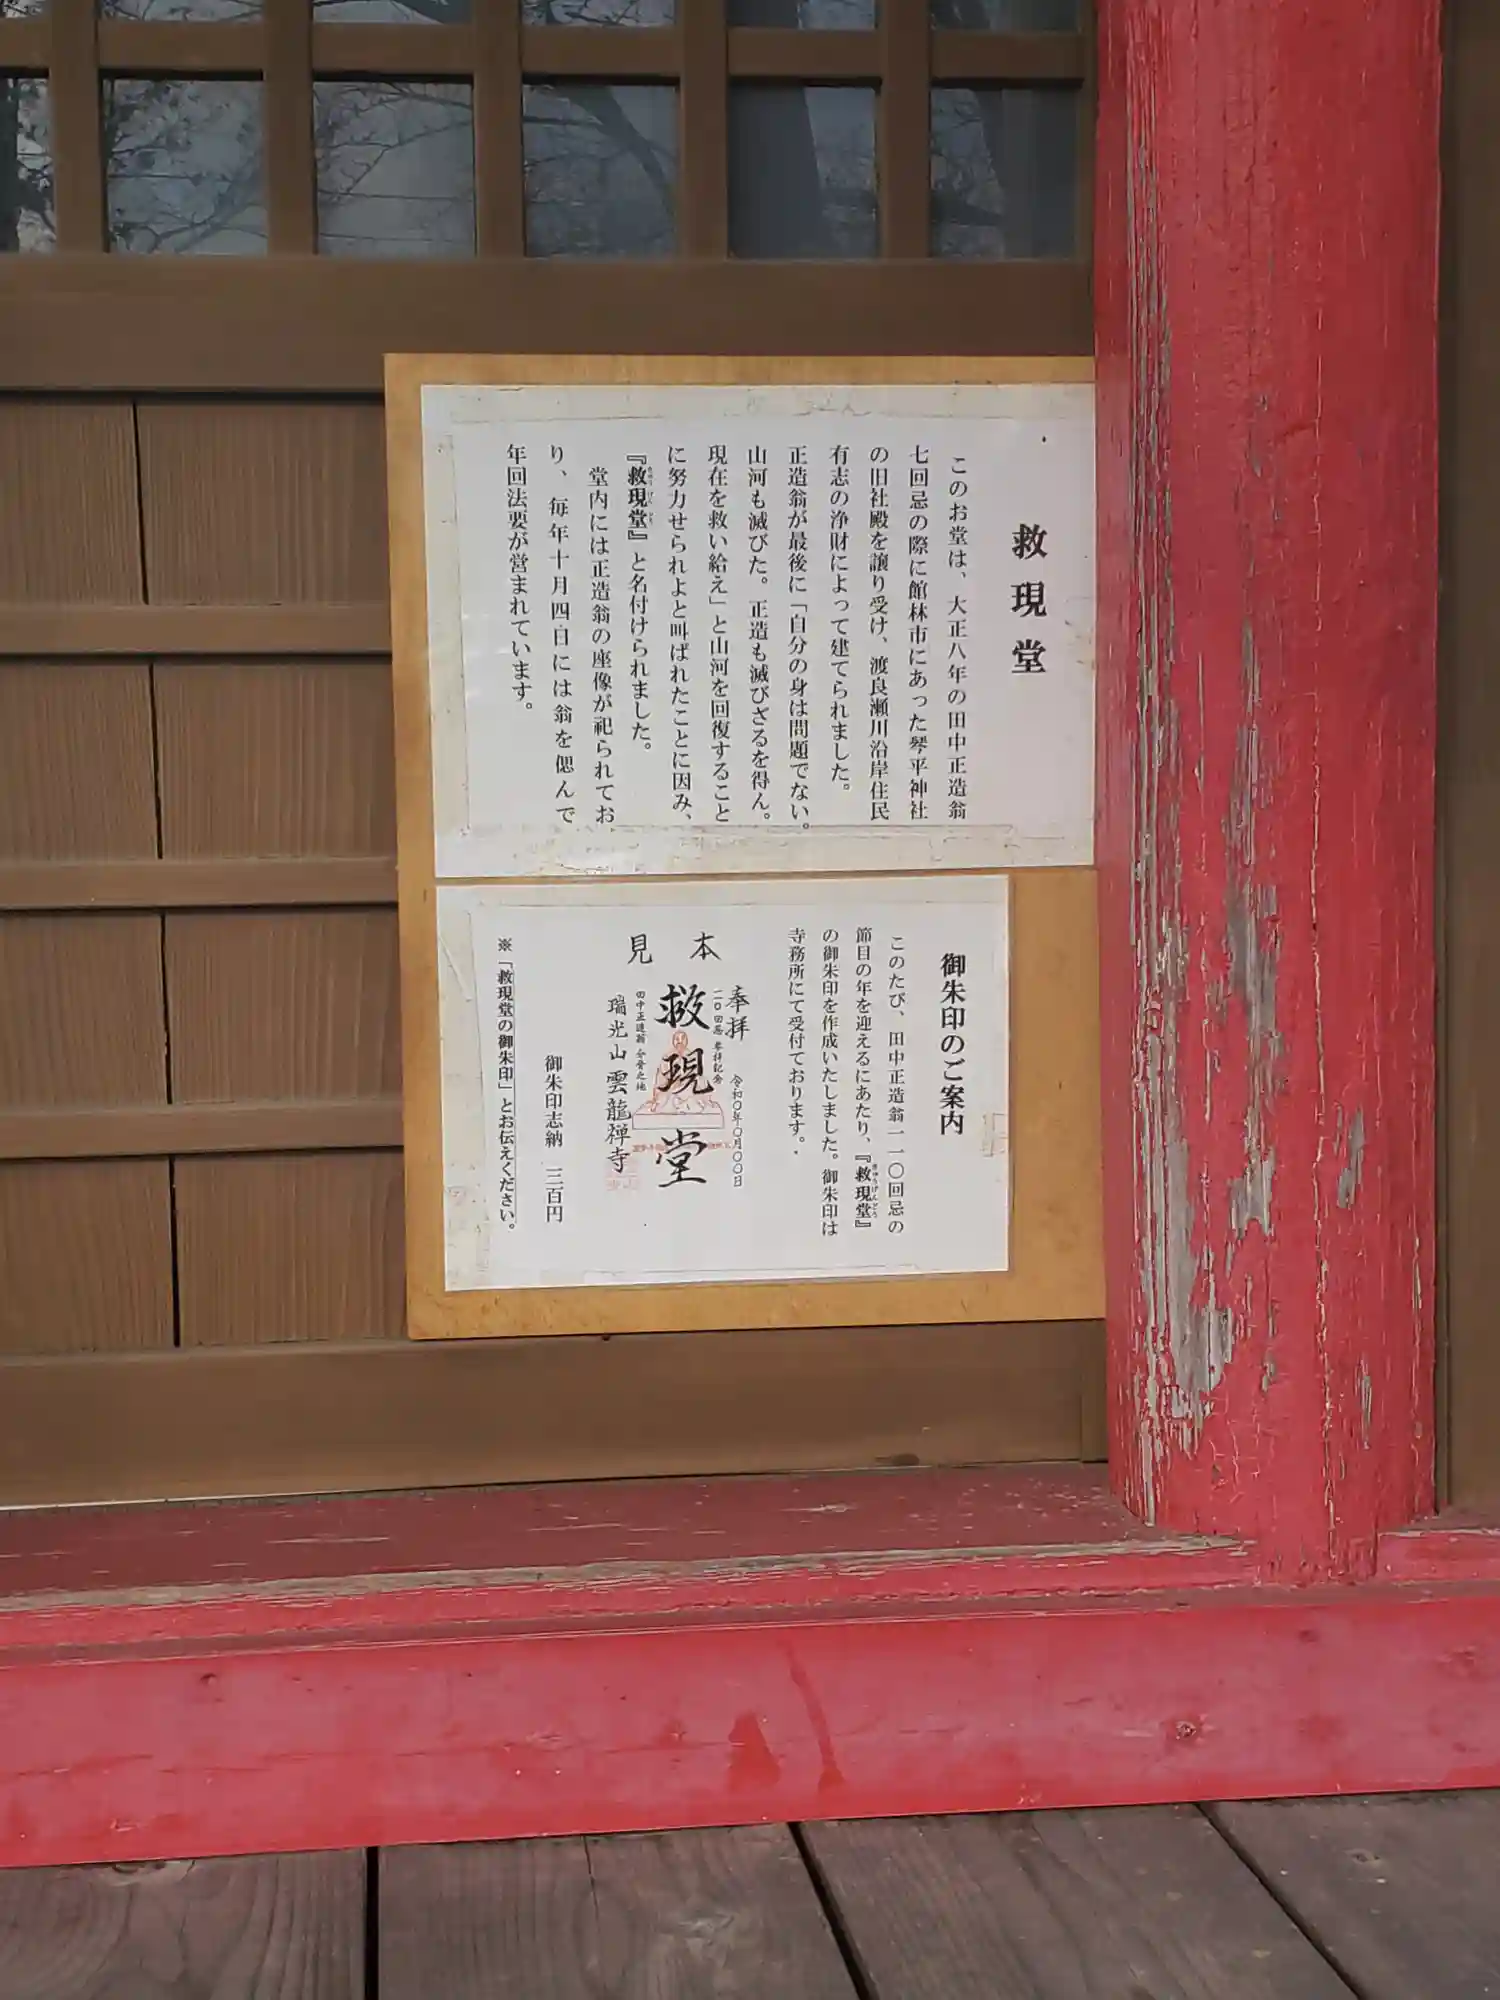 救現堂
このお堂は、大正八年の田中正造翁
七回忌の際に館林市にあった琴平神社
の旧社殿を譲り受け、渡良瀬川沿岸住民
有志の浄財によって建てられました。
正造翁が最後に「自分の身は問題でない。
山河も滅びた。正造も滅びざるを得ん。
現在を救い給え」と山河を回復すること
に努力せられよと叫ばれたことに因み、
『救現堂』と名付けられました。
堂内には正造翁の座像が祀られてお
り、毎年十月四日には翁を偲んで
年回法要が営まれています。
御朱印のご案内
このたび、田中正造翁一一〇回忌の
節目の年を迎えるにあたり、『救現堂』
の御朱印を作成いたしました。御朱印は
寺務所にて受付ております。
見本
奉拝
令和〇年〇月〇〇日
一一〇回忌 参拝記念
救現堂
田中正造翁 分骨之地
瑞光山雲龍禅寺
御朱印志納 三百円
※「救現堂の御朱印」とお伝えください。